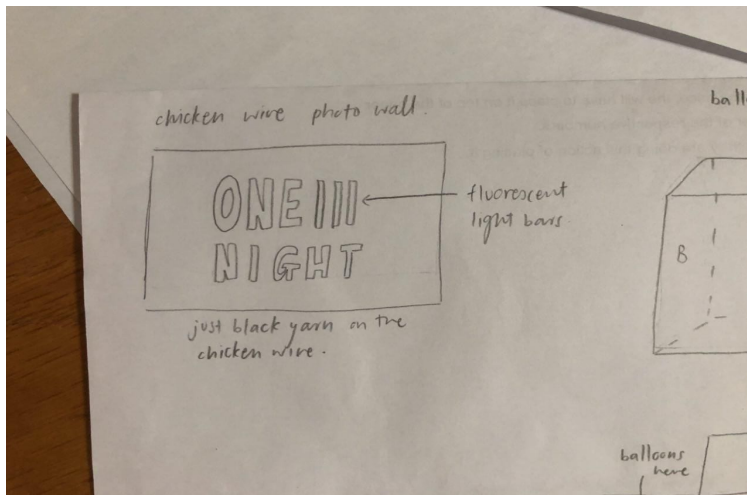 chicken wire photo wall.
ball
ONE
NIGHT
fluorescent
light bars.
just black yarn on the
chicken wire.
B
balloons
here